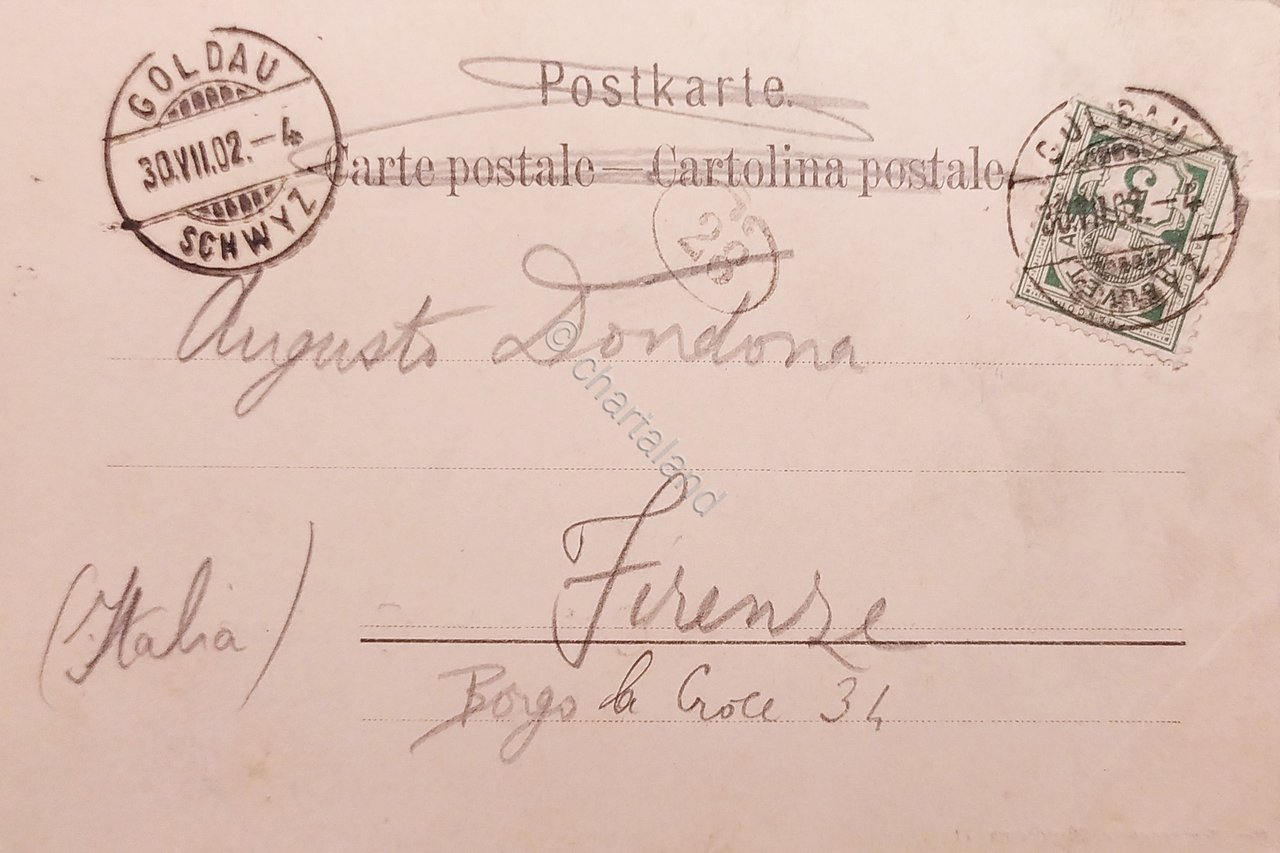 GOLDAU
30.VII.02.–4
SCHWYZ
Postkarte.
Carte postale — Cartolina postale
23
5
Augusto Dondona
© chartaland
Firenze
(Italia)
Borgo la Croce 34